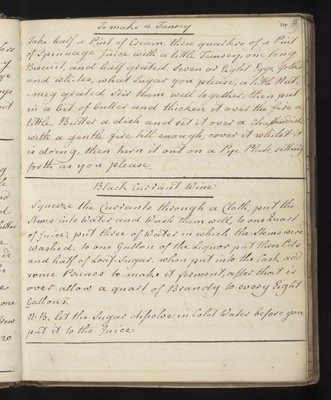 To make a Tansey
Take half a Pint of Cream, three quarters of a Pint
of Spinnage juice with a little Tansey, one long
Biscuit, and half grated, seven or Eight Eggs, Yolks
and whites, what Sugar you please, a little Nut-
meg grated Stir them well together, then put
in a bit of butter and thicken it over the fire a
little. Butter a dish and set it over a Chafindish
with a gentle fire till enough, cover it whilst it
is doing, then turn it out on a Pye Plate setting
forth as you please
Black Currant Wine
Squeeze the Currants through a Cloth, put the
Stems into Water and Wash them well, to one Quart
of juice put three of Water in which the Stems were
Washed. to one Gallon of the Liquor put three Pds
and half of Loaf Sugar. when put into the Cask add
some to make it ferment, after that is
over allow a quart of Brandy to every Eight
Gallons.
N:B. let the Sugar dissolve in Cold Water before you
put it to the Juice